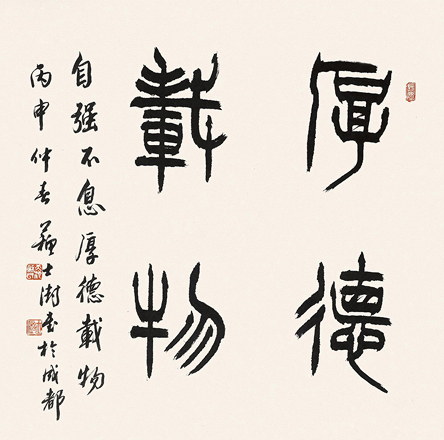 厚德
載物
自强不息厚德載物
丙申仲春蘇士澍書於成都